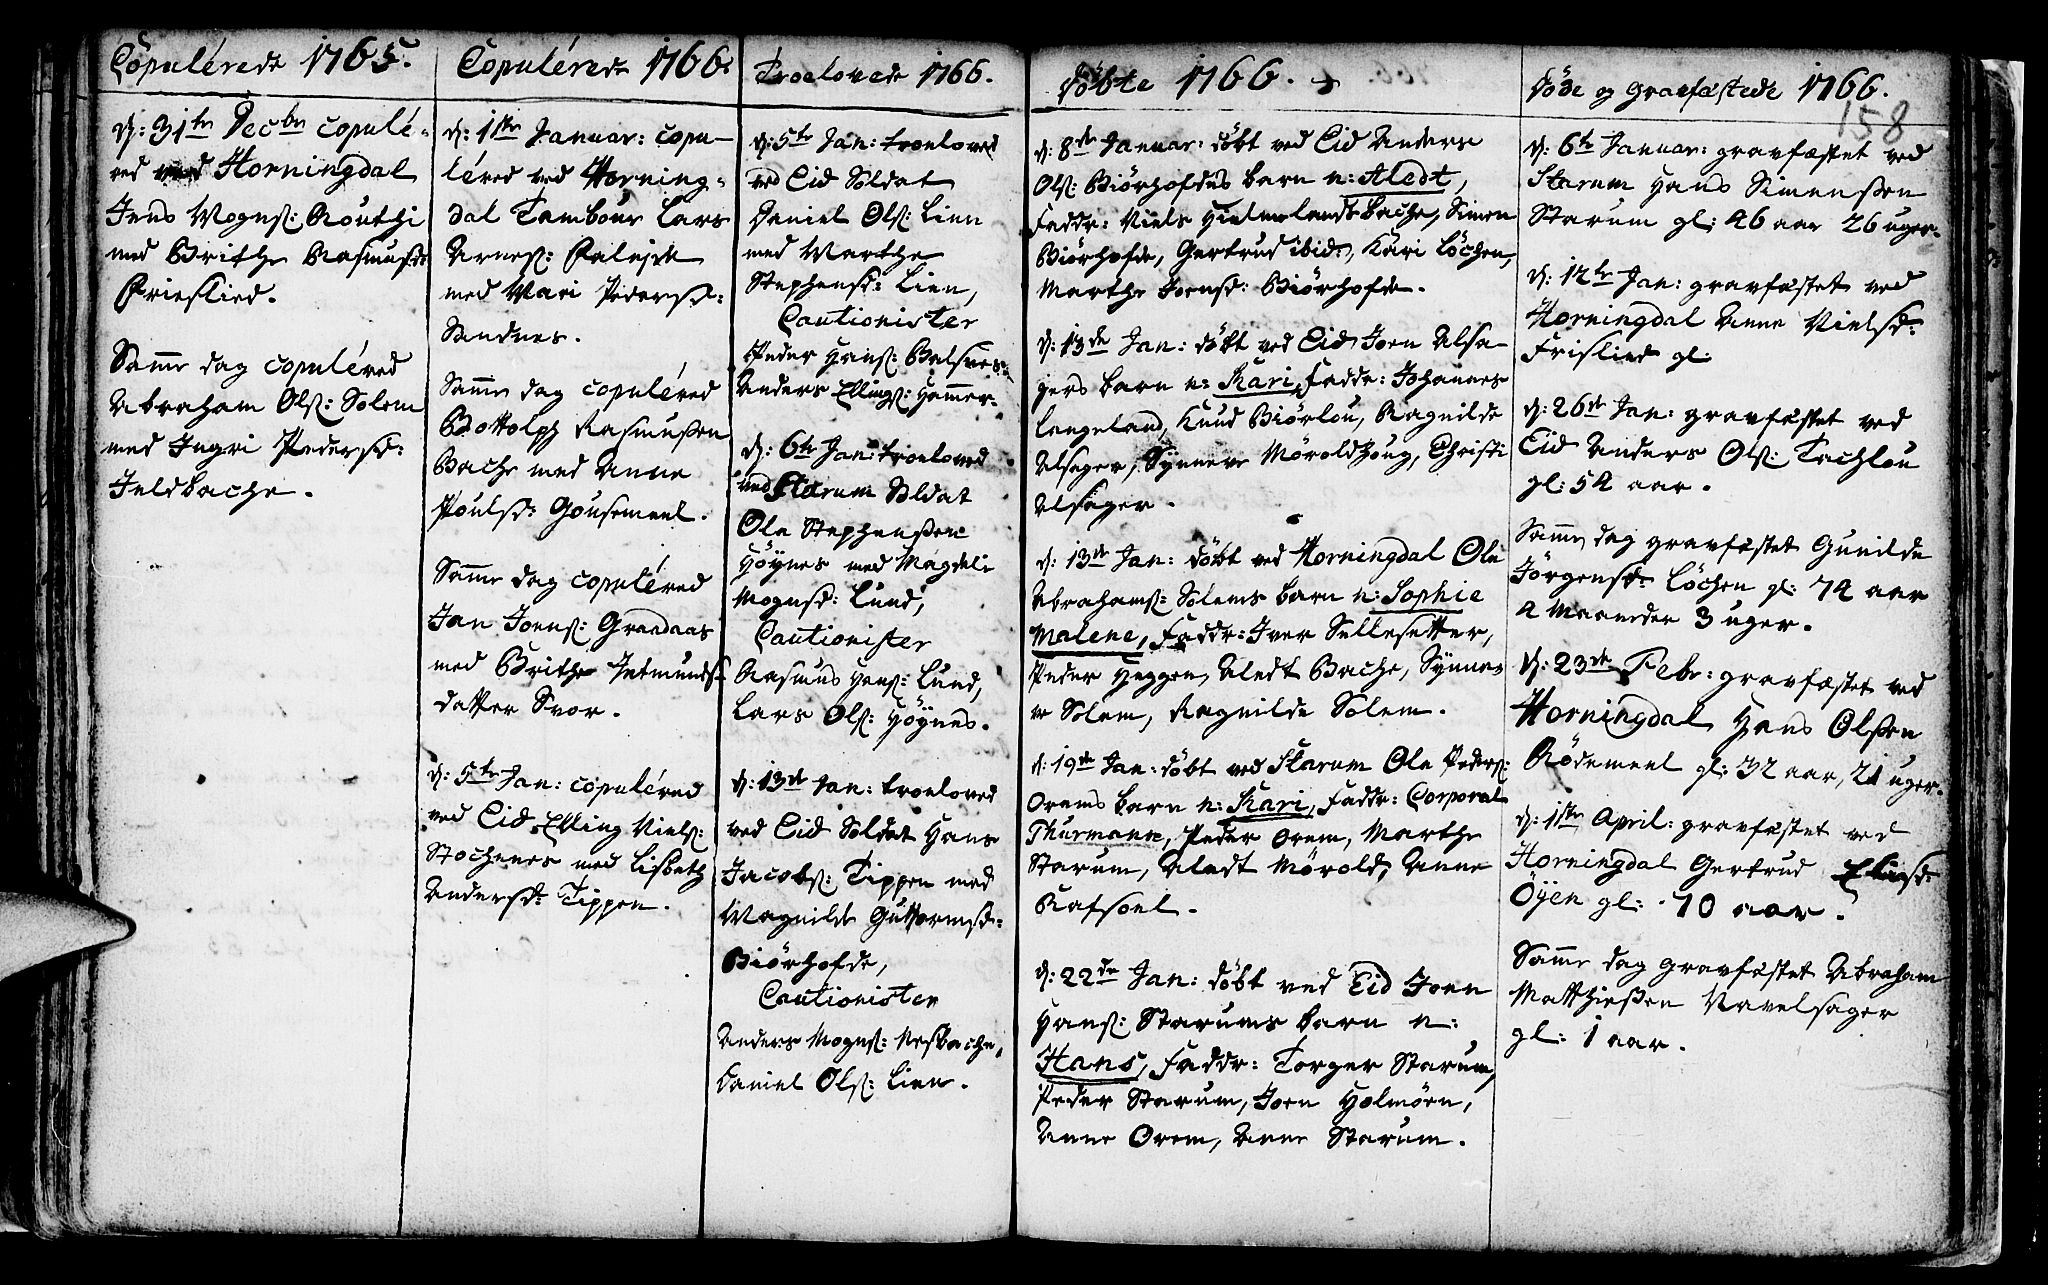 Copulérede 1765.
d: 31te Decbr copulé-
red ved Horningdal
Jens Mogns: Routhi
med Brithe Rasmusdr
Frislied.
Samme dag copuléred
Abraham Ols: Solem
med Ingri Pedersd:
Jeldbache.
Copulérede 1766.
d: 1ste Januar: copu-
léred ved Horning-
dal Tambour Lars
Arnes:
med Mari Pedersd:
Sandnes.
Samme dag copuléred
Bottolph Rasmussen
Bache med Anne
Poulsd: Gousemeel.
Samme dag copuléred
Jan Joens: Grandaas
med Brithe Intmunds
datter Svor.
d: 5te Jan: copuléred
ved Eid Elling Niels:
Stochenes med Lisbeth
Andersd: Tippen.
Troelovede 1766.
d: 5te Jan: troeloved
ved Eid Soldat
Daniel Ols: Lien
med Marthe
Stephensd: Lien,
Cautionister
Peder Hans: Balsnes
Anders Ellings: Hammer.
d: 6te Jan: troeloved
ved Starum Soldat
Ole Stephenssen
Höynes med Magdeli
Mognsd: Lund,
Cautionister
Rasmus Hans: Lund,
Lars Ols: Höynes.
d: 13de Jan: troeloved
ved Eid Soldat Hans
Jacobs: Tippen med
Magnilde Guttormsd:
Biörhofde,
Cautionister
Anders Mogns: Nesbache,
Daniel Ols: Lien.
Döbte 1766.
d: 8de Januar: döbt ved Eid Anders
Ols: Biörhofdes barn n: Aledt,
Faddr: Niels Hielmelandsbache, Simen
Biörhofde, Gertrud ibid:, Kari Löchen,
Marthe Joensd: Biörhofde.
d: 13de Jan: döbt ved Eid Joen Alsa-
gers barn n: Kari, Faddr: Johannes
Langeland, Knud Biörlou, Ragnilde
Alsager, Synneve Möroldhoug, Christi
Alsager.
d: 13de Jan: döbt ved Horningdal Ole
Abrahams: Solems barn n: Sophie
Malene, Faddr: Iver Sellesetter,
Peder Heggen, Aledt Bache, Synne-
ve Solem, Ragnilde Solem.
d: 19de Jan: döbt ved Starum Ole Peders:
Orems barn n: Kari, Faddr: Corporal
Thurmann, Peder Orem, Marthe
Starum, Aledt Mörold, Anne
Rafsoel.
d: 22de Jan: döbt ved Eid Joen
Hans: Starums barn n:
Hans, Faddr: Torger Starum,
Peder Starum, Joen Holmöen,
Anne Orem, Anne Starum.
Döde og gravfæstede 1766.
158
d: 6te Januar: gravfæstet ved
Starum Hans Simenssen
Starum gl: 46 aar 26 uger.
d: 12te Jan: gravfæstet ved
Horningdal Anne Nielsd:
Frislied gl:
d: 26de Jan: gravfæstet ved
Eid Anders Ols: Tachlou
gl: 54 aar.
Samme dag gravfæstet Gunilde
Jörgensd: Löchen gl: 74 aar
4 Maaneder 3 uger.
d: 23de Febr: gravfæstet ved
Horningdal Hans Olssen
Rödemeel gl: 32 aar, 21 uger.
d: 1ste April: gravfæstet ved
Horningdal Gertrud Eliasd:
Öyen gl: 70 aar.
Samme dag gravfæstet Abraham
Matthiessen Navelsager
gl: 1 aar.